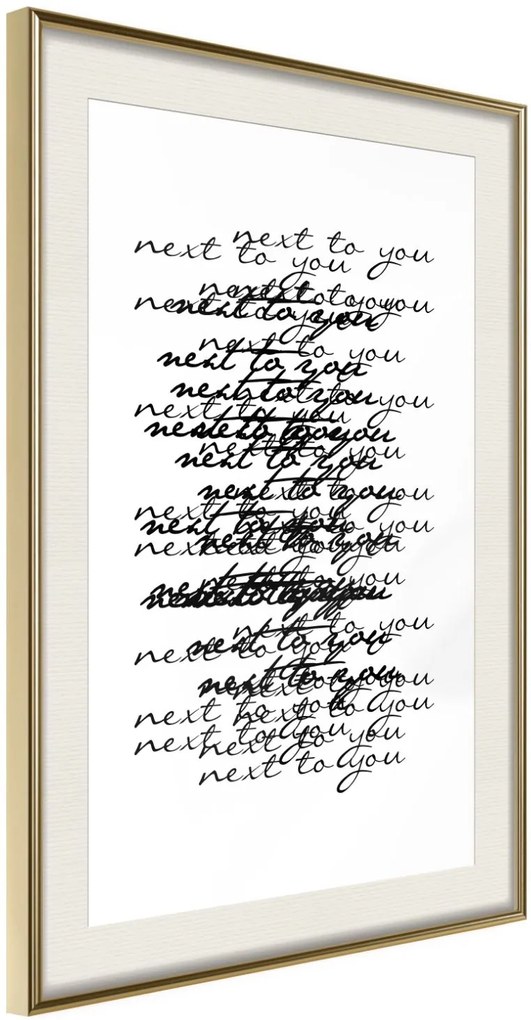 next to you
next to you
next to you
next to you
next to you
next to you
next to you
next to you
next to you
next to you
next to you
next to you
next to you
next to you
next to you
next to you
next to you
next to you
next to you
next to you
next to you
next to you
next to you
next to you
next to you